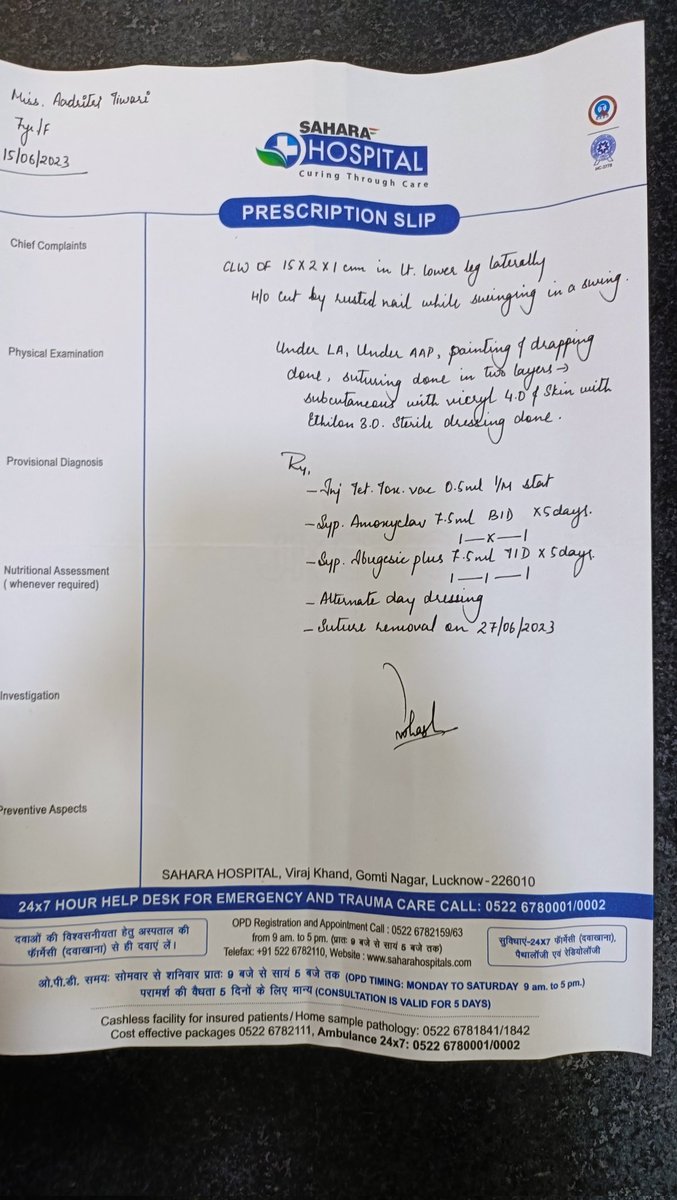 Miss. Aadriti Tiwari
7yr/F
15/06/2023
SAHARA
HOSPITAL
Curing Through Care
PRESCRIPTION SLIP
Chief Complaints
CLW OF 15x2x1 cm in Lt. lower leg laterally
H/O cut by rusted nail while swinging in a swing.
Physical Examination
Under LA, Under AAP, painting & drapping
done, suturing done in two layers →
subcutaneous with vicryl 4.0 & Skin with
Ethilon 3.0. Sterile dressing done.
Provisional Diagnosis
Rx,
- Inj Tet. Tox. vac 0.5ml I/M stat
- Syp. Amoxyclav 7.5ml BID x5days.
1—x—1
- Syp. Ibugesic plus 7.5ml TID x5days.
1—1—1
Nutritional Assessment
( whenever required)
- Alternate day dressing
- Suture removal on 27/06/2023
Investigation
Preventive Aspects
SAHARA HOSPITAL, Viraj Khand, Gomti Nagar, Lucknow-226010
24x7 HOUR HELP DESK FOR EMERGENCY AND TRAUMA CARE CALL: 0522 6780001/0002
दवाओं की विश्वसनीयता हेतु अस्पताल की
फॉर्मेसी (दवाखाना) से ही दवाएं लें।
OPD Registration and Appointment Call : 0522 6782159/63
from 9 am. to 5 pm. (प्रातः 9 बजे से सायं 5 बजे तक)
Telefax: +91 522 6782110, Website : www.saharahospitals.com
सुविधाएं-24X7 फॉर्मेसी (दवाखाना),
पैथालॉजी एवं रेडियोलॉजी
ओ.पी.डी. समयः सोमवार से शनिवार प्रातः 9 बजे से सायं 5 बजे तक (OPD TIMING: MONDAY TO SATURDAY 9 am. to 5 pm.)
परामर्श की वैधता 5 दिनों के लिए मान्य (CONSULTATION IS VALID FOR 5 DAYS)
Cashless facility for insured patients/ Home sample pathology: 0522 6781841/1842
Cost effective packages 0522 6782111, Ambulance 24x7: 0522 6780001/0002